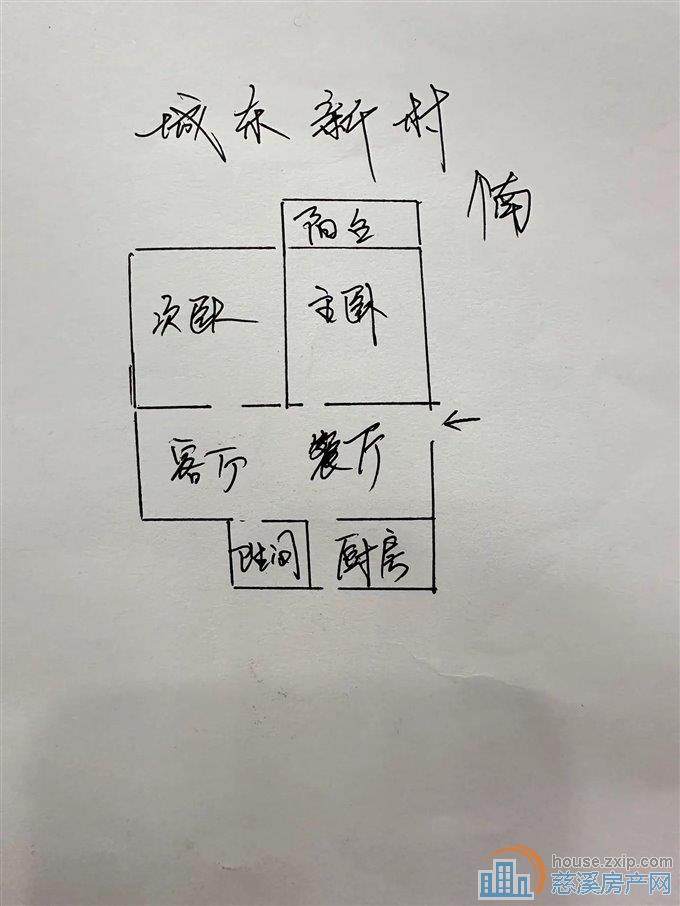 城东新村
南
阳台
次卧 主卧
客厅 餐厅
卫生间 厨房
house.zxip.com
慈溪房产网